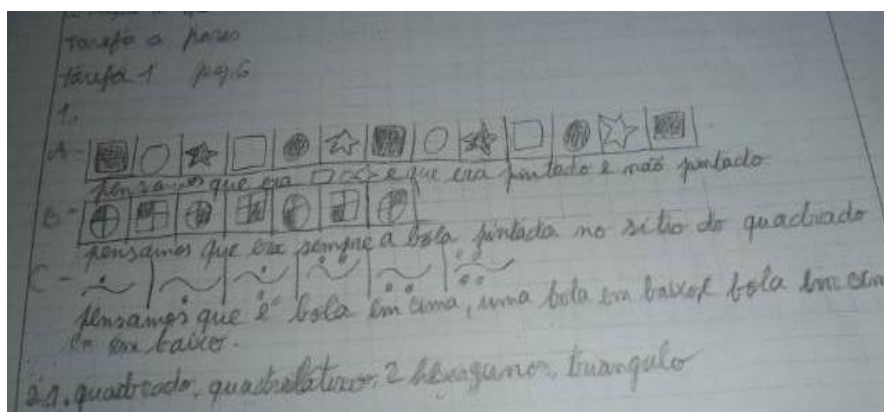 tarefa a pares
tarefa 1 pag 6
1.
A-
pensamos que era e que era pintado e não pintado
B-
pensamos que era sempre a bola pintada no sitio do quadrado
C-
pensamos que é bola em cima, uma bola em baixo bola em cim
em baixo.
2.1. quadrado, quadrilatero, 2 hexagunos, triangulo